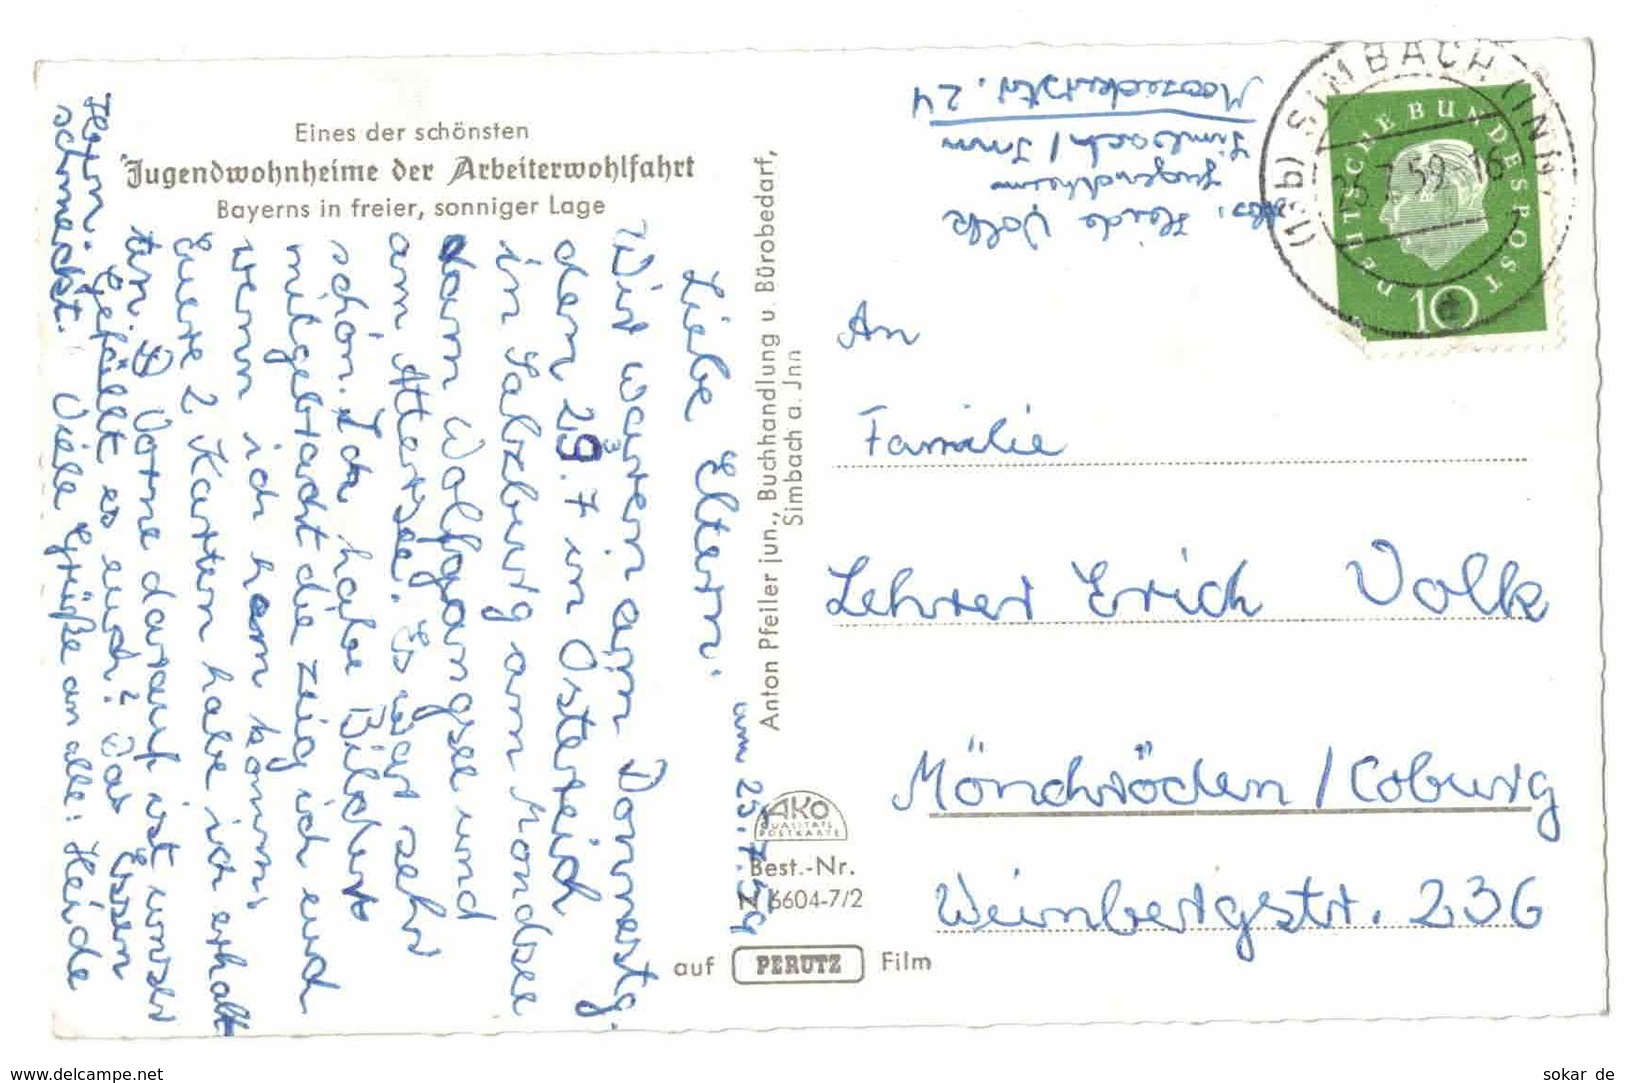 Eines der schönsten
Jugendwohnheime der Arbeiterwohlfahrt
Bayerns in freier, sonniger Lage
am 25.7.59
Liebe Eltern.
Wir waren am Donnerstg.
den 23.7 in Östereich
in Salzburg am Mondsee
dann Wolfgangsee und
am Attersee. Es war sehr
schön. Ich habe Bilder
mitgebracht die zeig ich euch
wenn ich heim komm.
Euere 2 Karten habe ich erhalt
ten. D Vorne darauf ist unser
Heim. Gefällt es euch? Das Essen
schmeckt. Viele Grüße an alle: Heide
Anton Pfeiler jun., Buchhandlung u. Bürobedarf,
Simbach a. Jnn
AKO
QUALITÄTS
POSTKARTE
Best.-Nr.
N 6604-7/2
auf PERUTZ Film
Abs. Heide Volk
Jugendheim
Simbach / Inn
Moozeckerstr. 24
(13b) SIMBACH (INN)
25.7.59.-16
DEUTSCHE BUNDESPOST
10
An
Familie
Lehrer Erich Volk
Mönchröden / Coburg
Weinbergstr. 236
www.delcampe.net
sokar de